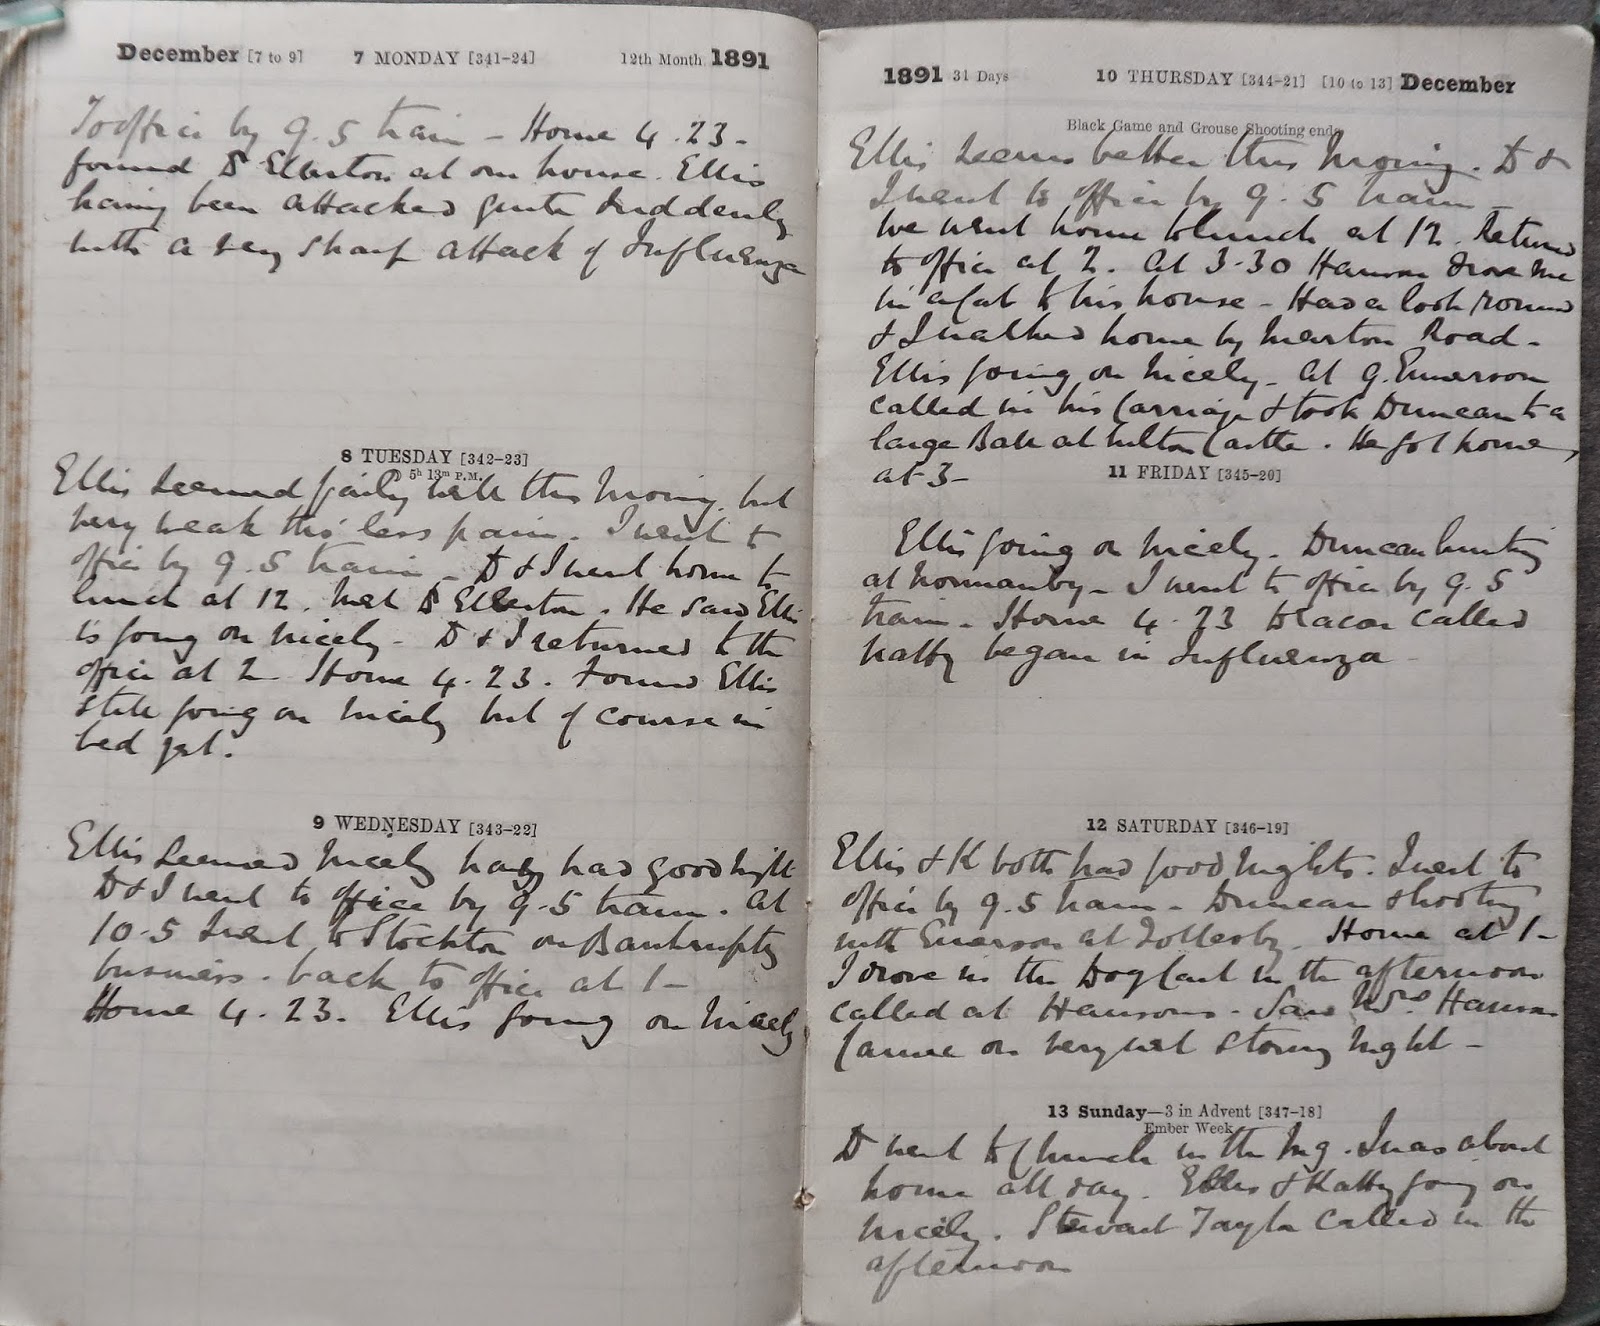 December [7 to 9] 7 MONDAY [341-24] 12th Month 1891
To office by 9.5 train - Home 4.23 -
found D Ellerton at our house. Ellis
having been attacked quite suddenly
with a very sharp attack of Influenza
8 TUESDAY [342-23]
5h 13m P.M.
Ellis seemed fairly well this morning. but
very weak tho' less pain. I went to
office by 9.5 train - D & I went home to
lunch at 12. Met D Ellerton. He said Ellis
is going on nicely - D & I returned to the
office at 2. Home 4.23. Found Ellis
still going on nicely but of course in
bed yet.
9 WEDNESDAY [343-22]
Ellis seemed nicely having had good night
D & I went to office by 9.5 train. At
10.5 I went to Stockton on Bankruptcy
business. back to office at 1 -
Home 4.23. Ellis going on nicely
1891 31 Days 10 THURSDAY [344-21] [10 to 13] December
Black Game and Grouse Shooting ends
Ellis seems better this morning. D &
I went to office by 9.5 train -
We went home to lunch at 12. Returned
to office at 2. At 3.30 Hanson drove me
in a Cab to his house - Had a look round
& I walked home by Marton Road -
Ellis going on nicely - At 9. Emerson
called in his Carriage & took Duncan to a
large Ball at Hilton Castle. He got home
at 3 -
11 FRIDAY [345-20]
Ellis going on nicely. Duncan hunting
at Normanby - I went to office by 9.5
train - Home 4.23 called
Katty began in Influenza -
12 SATURDAY [346-19]
Ellis & K both had good nights. I went to
office by 9.5 train - Duncan shooting
with Emerson at Tollesby. Home at 1 -
I drove in the Dog Cart in the afternoon
called at Hansons - Saw Mrs. Hanson
Came on very wet stormy night -
13 Sunday—3 in Advent [347-18]
Ember Week
D went to Church in the Mg. I was about
home all day. Ellis & Katty going on
nicely. Stewart Taylor called in the
afternoon